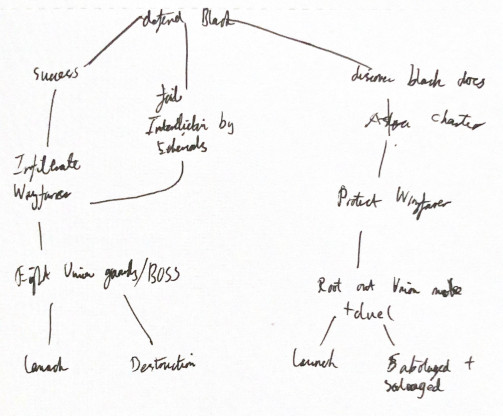 defend Black
success
discover black docs
fail
Interdiction by
Adora charter
Infiltrate
Wayfarer
Protect Wayfarer
Fight Union guards/BOSS
Root out Union moles
+ duel
Launch
Destruction
Launch
Sabotaged +
Salvaged